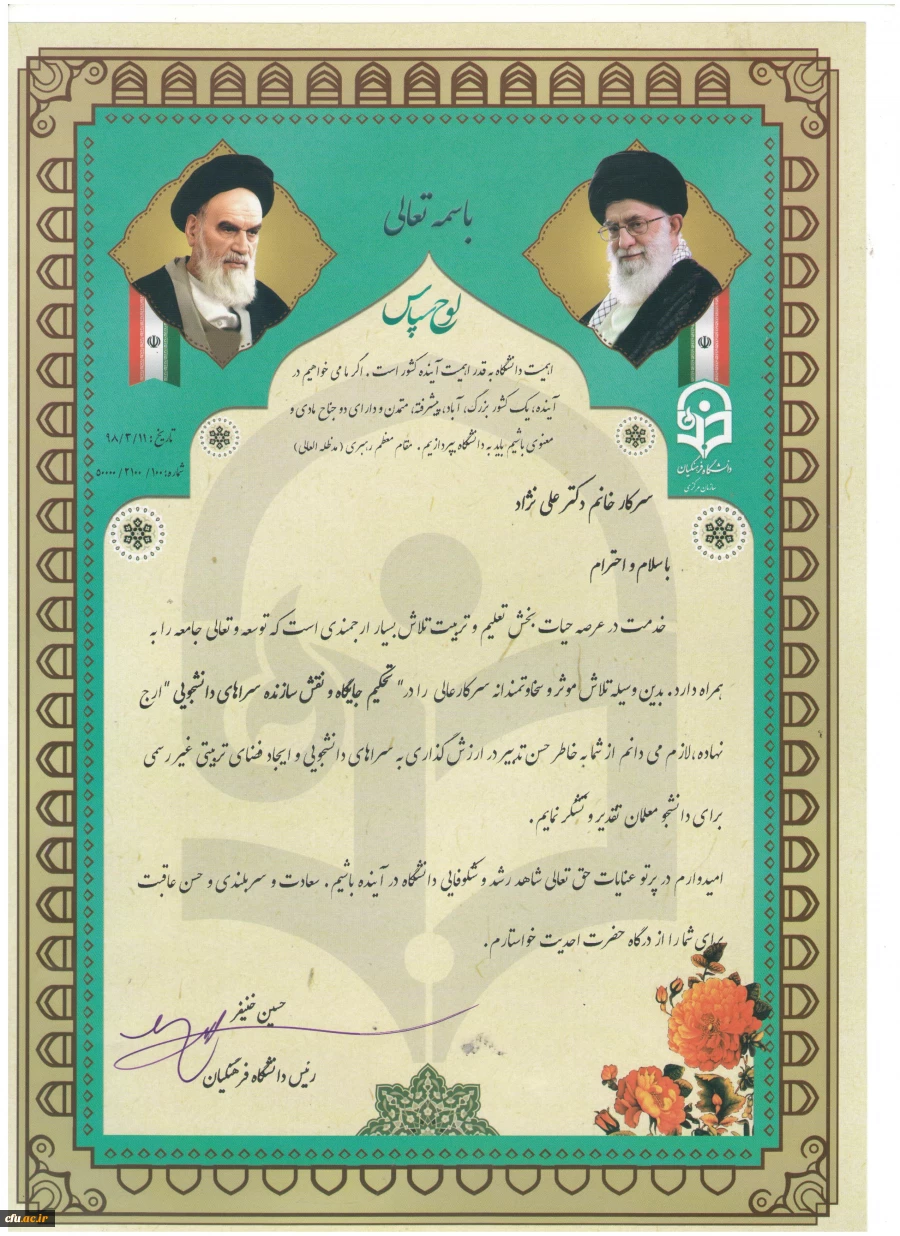 باسمه تعالی
لوح سپاس
اهمیت دانشگاه به قدر اهمیت آینده کشور است . اگر ما می خواهیم در
آینده، یک کشور بزرگ، آباد، پیشرفته، متمدن و دارای دو جناح مادی و
معنوی باشیم باید به دانشگاه بپردازیم . مقام معظم رهبری (مدظله العالی)
تاریخ: ۹۸/۳/۱۱
شماره: ۵۰۰۰۰/۲۱۰۰/۱۰۰
دانشگاه فرهنگیان
سازمان مرکزی
سرکار خانم دکتر علی نژاد
با سلام و احترام
خدمت در عرصه حیات بخش تعلیم و تربیت تلاش بسیار ارجمندی است که توسعه و تعالی جامعه را به
همراه دارد. بدین وسیله تلاش موثر و سخاوتمندانه سرکارعالی را در "تحکیم جایگاه و نقش سازنده سراهای دانشجویی" ارج
نهاده، لازم می دانم از شما به خاطر حسن تدبیر در ارزش گذاری به سراهای دانشجویی و ایجاد فضای تربیتی غیر رسمی
برای دانشجو معلمان تقدیر و تشکر نمایم .
امیدوارم در پرتو عنایات حق تعالی شاهد رشد و شکوفایی دانشگاه در آینده باشیم . سعادت و سربلندی و حسن عاقبت
برای شما را از درگاه حضرت احدیت خواستارم .
حسین خنیفر
رئیس دانشگاه فرهنگیان
cfu.ac.ir